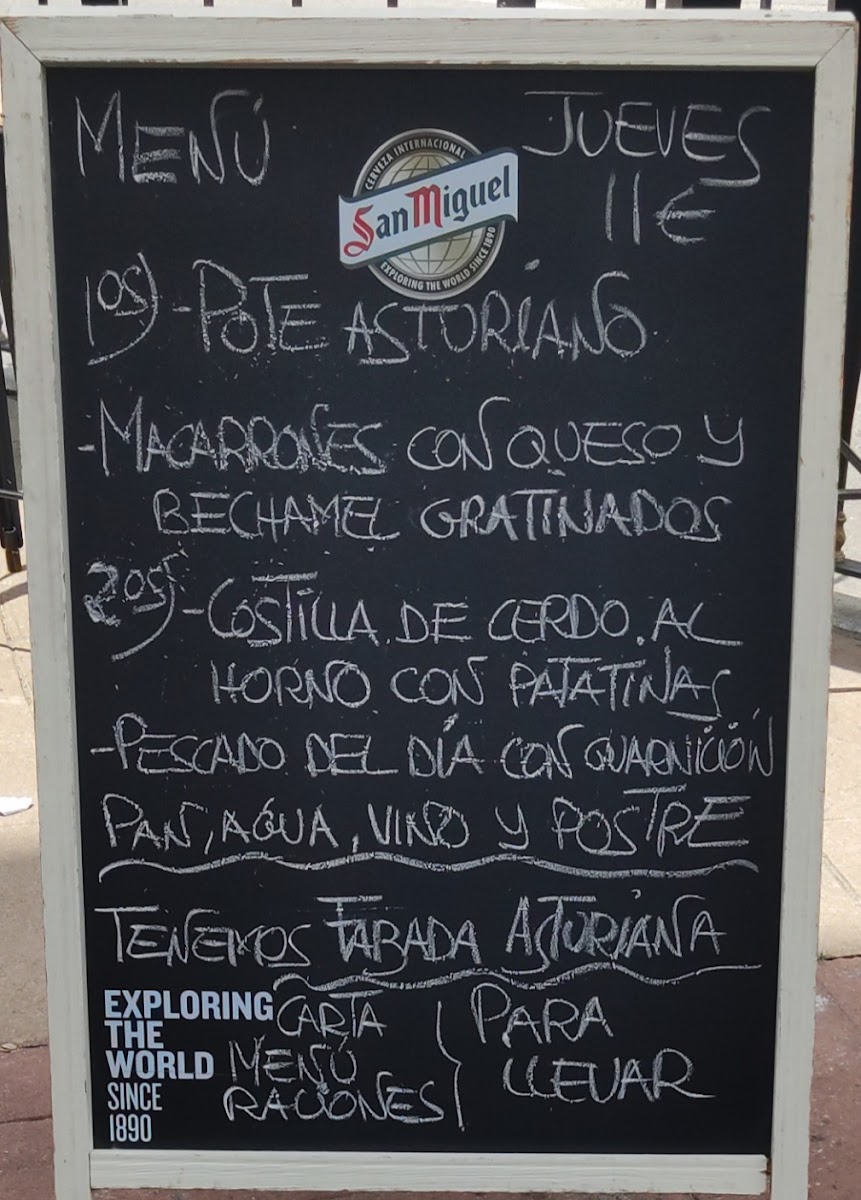 MENÚ
JUEVES
11€
CERVEZA INTERNACIONAL
San Miguel
EXPLORING THE WORLD SINCE 1890
1os) - POTE ASTURIANO
- MACARRONES CON QUESO Y
BECHAMEL GRATINADOS
2os) - COSTILLA DE CERDO AL
HORNO CON PATATINAS
- PESCADO DEL DÍA CON GUARNICIÓN
PAN, AGUA, VINO Y POSTRE
TENEMOS FABADA ASTURIANA
CARTA
MENÚ
RACIONES
PARA
LLEVAR
EXPLORING
THE
WORLD
SINCE
1890